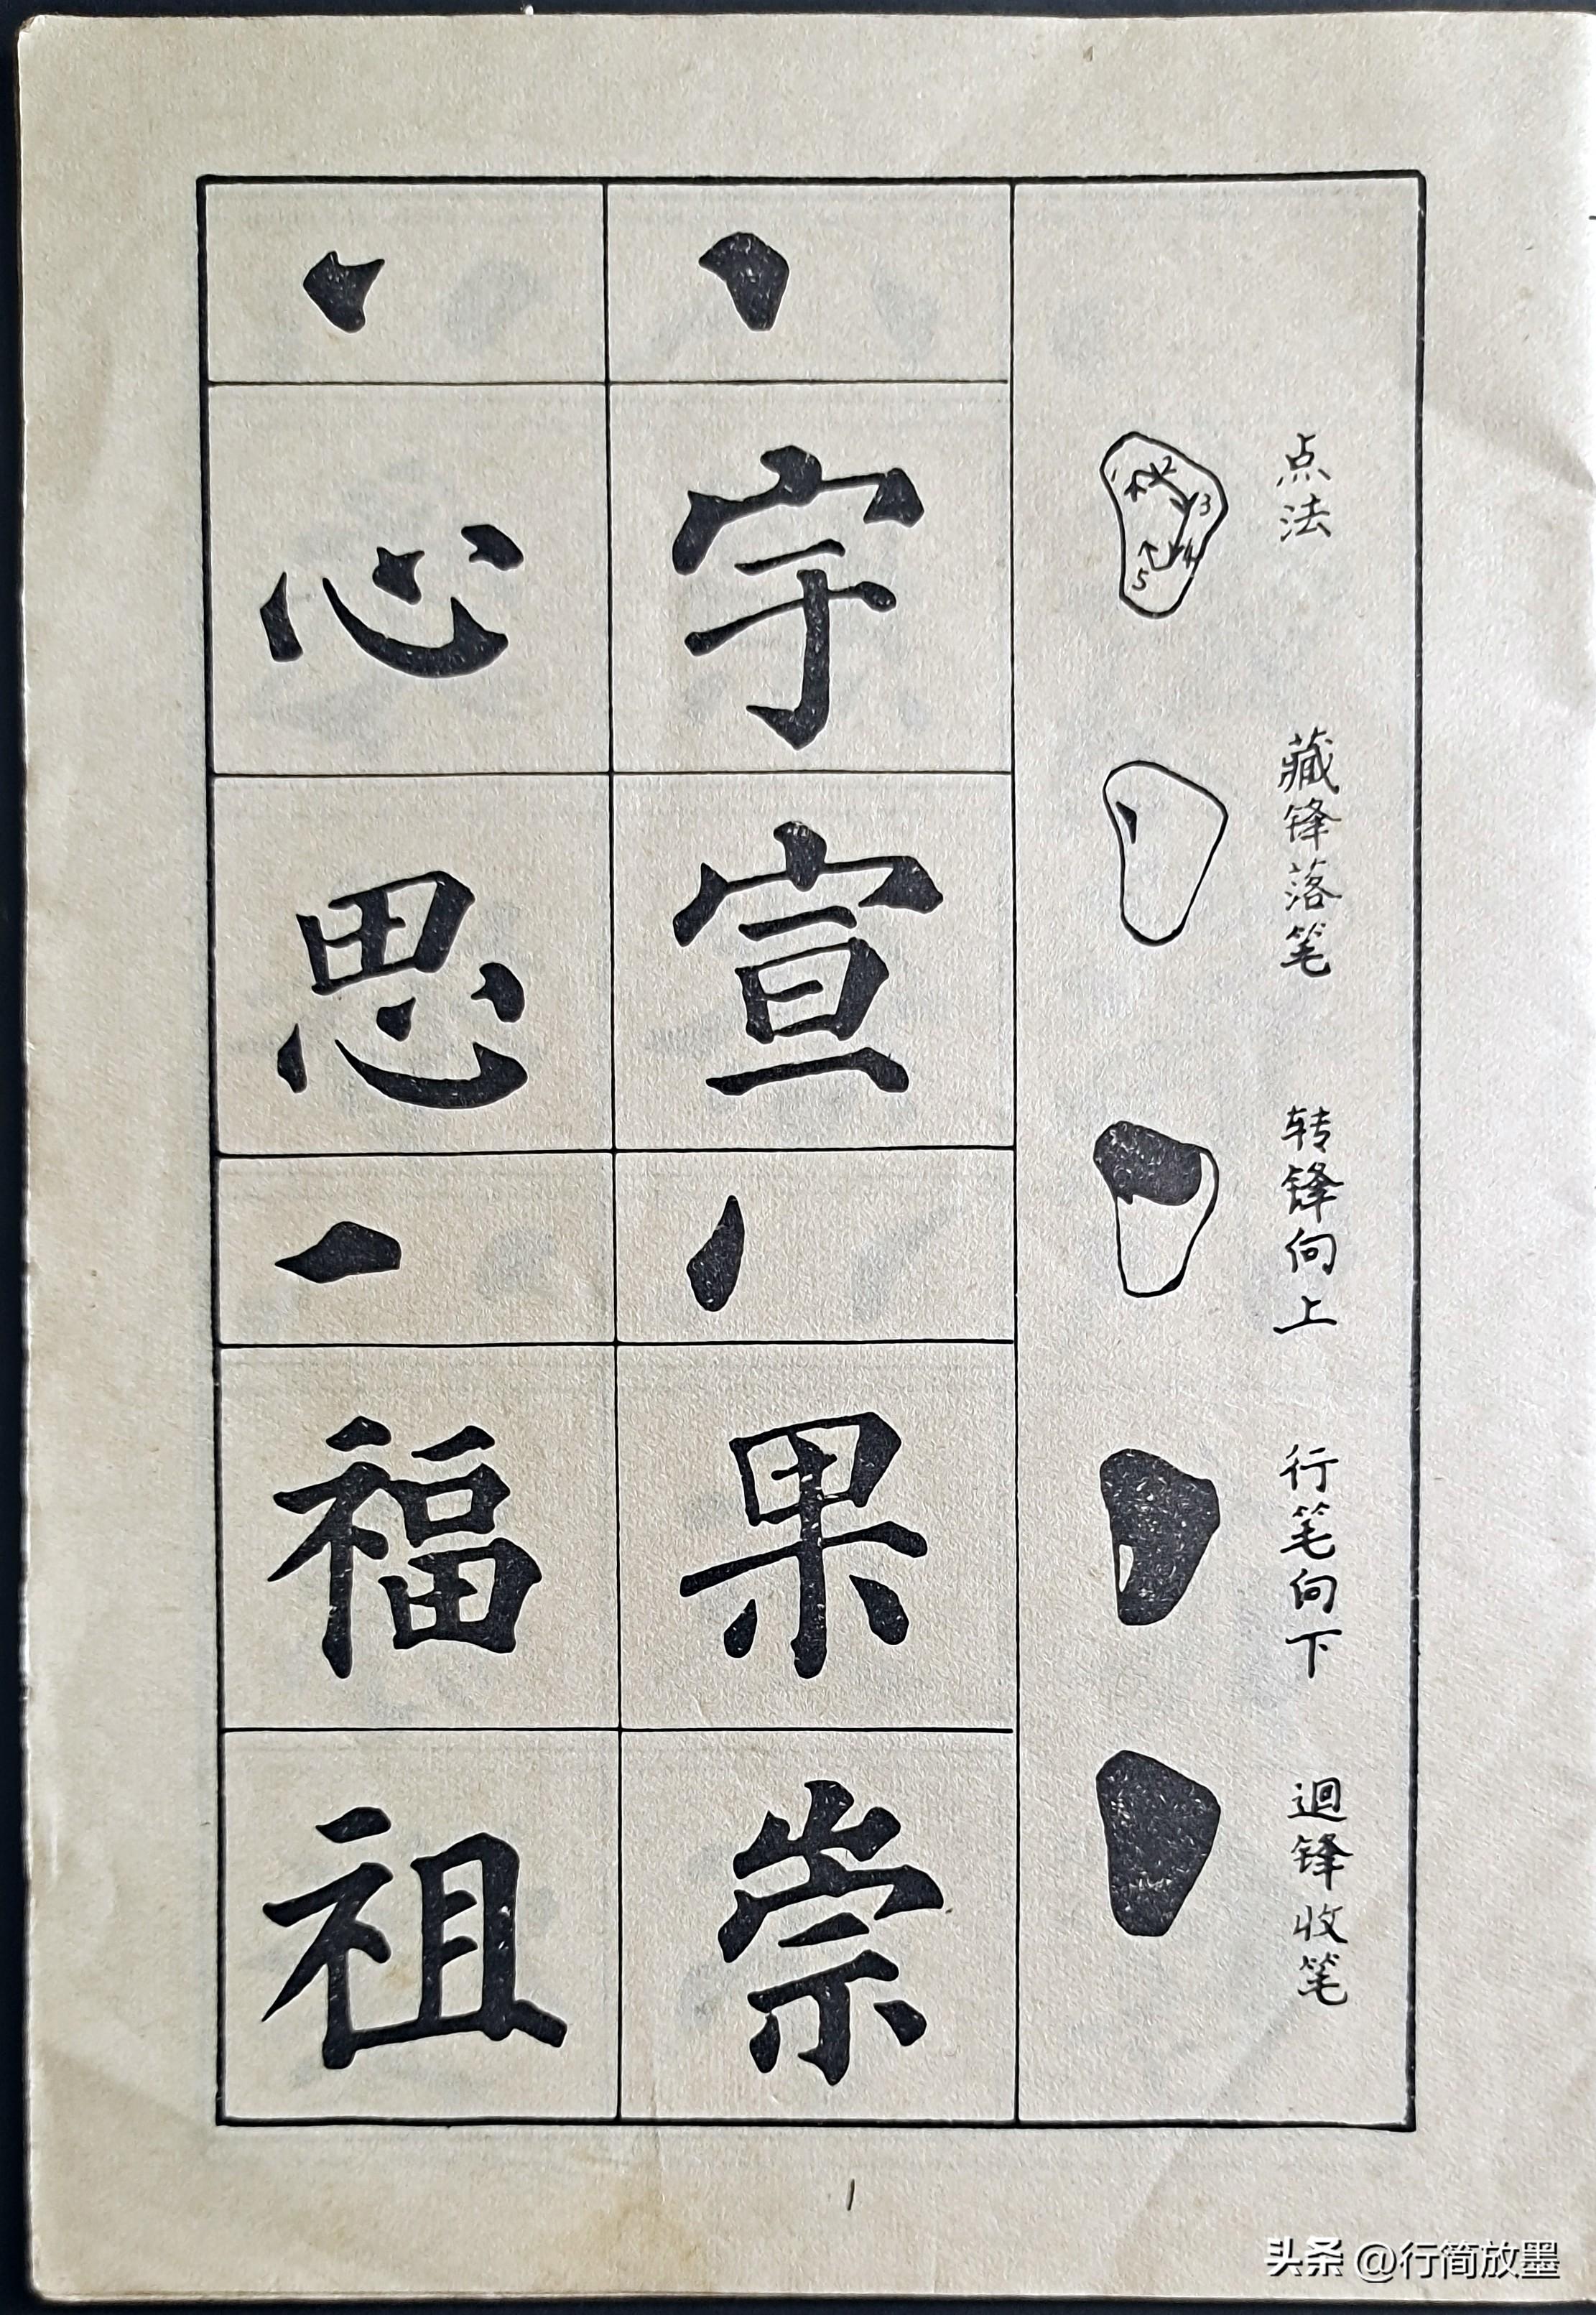 点法
藏锋落笔
转锋向上
行笔向下
迴锋收笔
1 2 3 4 5
丶
宇
宣
果
崇
心
思
福
祖
1
头条 @行简放墨